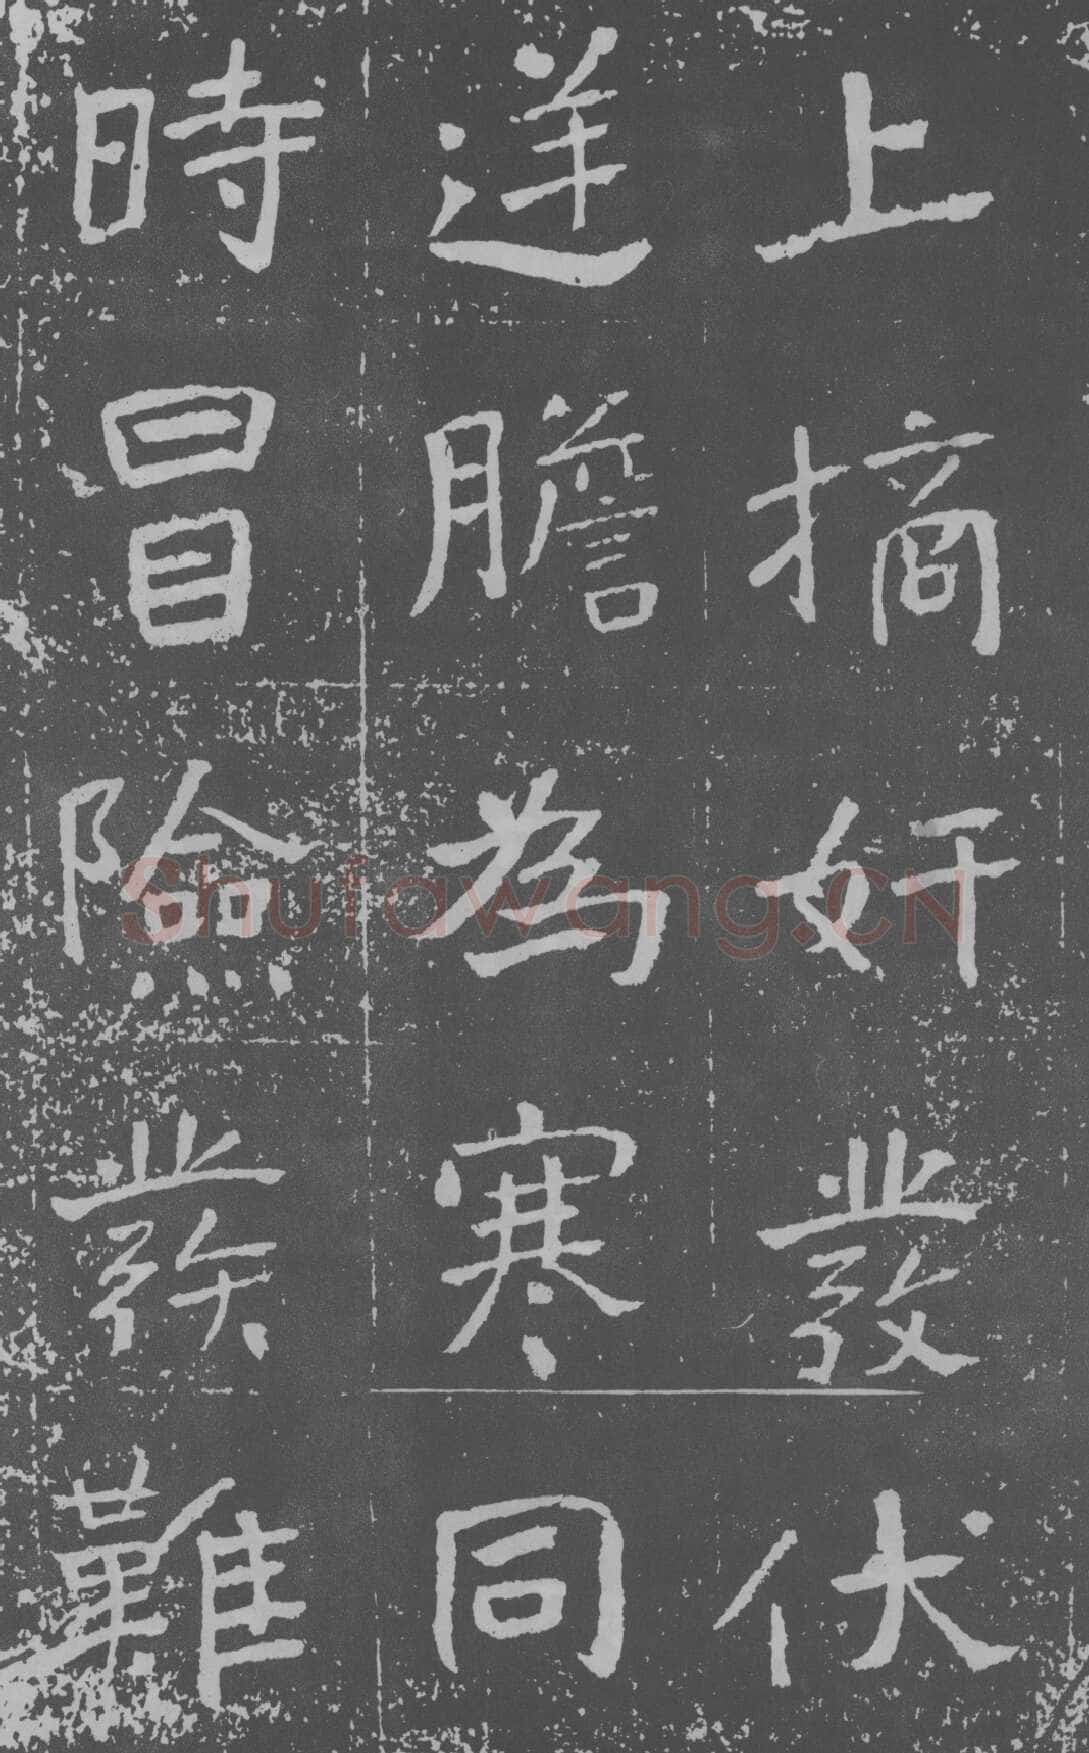 上摘奸發伏
逆膽為寒同
時冒險發難
Shufawang.CN